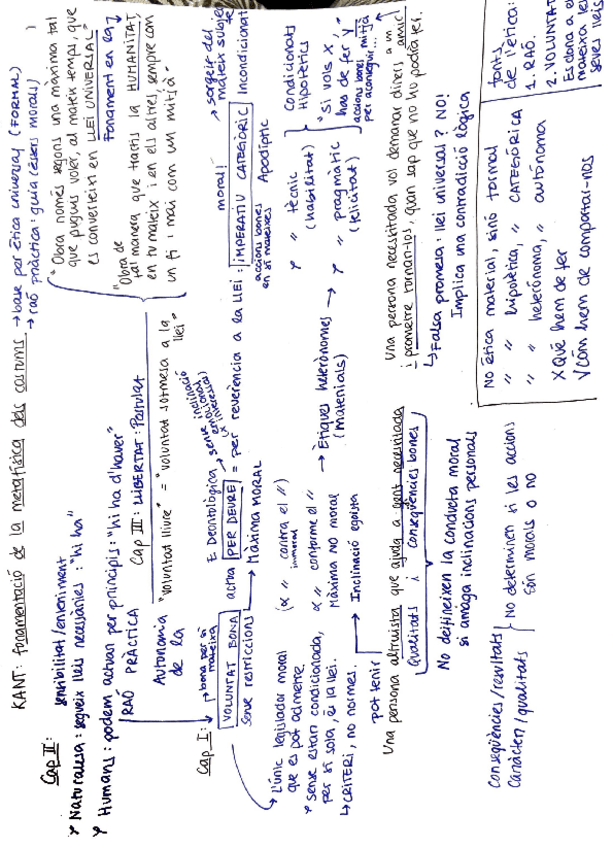 KANT: fonamentació de la metafísica dels costums → base per ètica universal (FORMAL)
→ raó pràctica: guia (éssers morals)
Cap II: sensibilitat / enteniment
Naturalesa: segueix lleis necessàries: "hi ha"
Humans: podem actuar per principis: "hi ha d'haver"
RAÓ PRÀCTICA
Cap III: LLIBERTAT: Postulat
Autonomia de la "voluntad lliure" = "voluntad sotmesa a la llei"
"Obra només segons una màxima tal
que puguis voler, al mateix temps, que
es converteixi en LLEI UNIVERSAL"
Fonament en eq
"Obra de
tal manera que tractis la HUMANITAT,
en tu mateix i en els altres, sempre com
un fi i mai com un mitjà"
Cap I: → bona per si mateixa
VOLUNTAT BONA
sense restriccions
E. Deontològica
sense inclinació
actua PER DEURE = per reverència a la LLEI: IMPERATIU CATEGÒRIC Incondicionat
moral:
→ sorgeix del
mateix subjecte
accions bones Apodíptic
en si mateixes
→ Màxima MORAL
→ L'únic legislador moral
que es pot admetre
sense estar condicionada,
per si sola, és la llei.
↳ CRITERI, no normes.
(α " contra el ")
immoral
α " conforme el "
Màxima NO moral
→ Inclinació egoista
pot tenir
→ Ètiques heterònomes
(materials)
" tècnic
(habilitat)
" pragmàtic
(felicitat)
Condicionats
Hipotètics
"Si vols x,
has de fer y"
accions bones mitjà
per aconseguir...
Una persona altruista que ajuda a gent necessitada
Qualitats i conseqüències bones
No defineixen la conducta moral
si amaga inclinacions personals
Una persona necessitada vol demanar diners a un amic i
prometre tornar-los, quan sap que no ho podrà fer.
↳ Falsa promesa: llei universal? NO!
Implica una contradicció lògica
Conseqüències / resultats
Caràcter / qualitats
No determinen si les accions
són morals o no
No ètica material, sinó formal
" " hipotètica, " CATEGÒRICA
" " heterònoma, " autònoma
X Què hem de fer
V Com hem de comportar-nos
fonts
de l'ètica:
1. RAÓ.
2. VOLUNTAT
Es dona a el
mateixa les
seves lleis